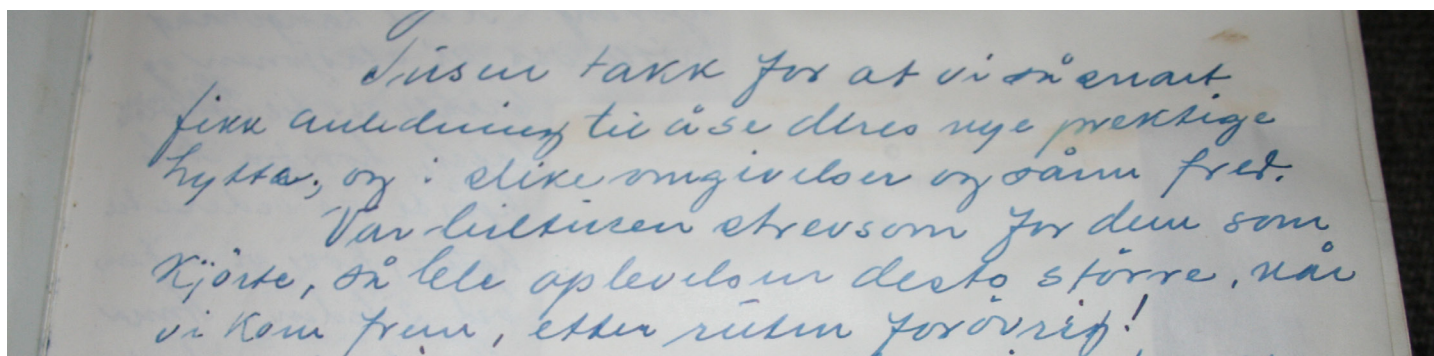 Tusen takk for at vi så snart
fikk anledning til å se deres nye prektige
hytta, og i slike omgivelser og sånn fred.
Var bilturen strevsom for dem som
Kjörte, så ble oplevelsen desto större, når
vi kom frem, etter ruten forövrig!